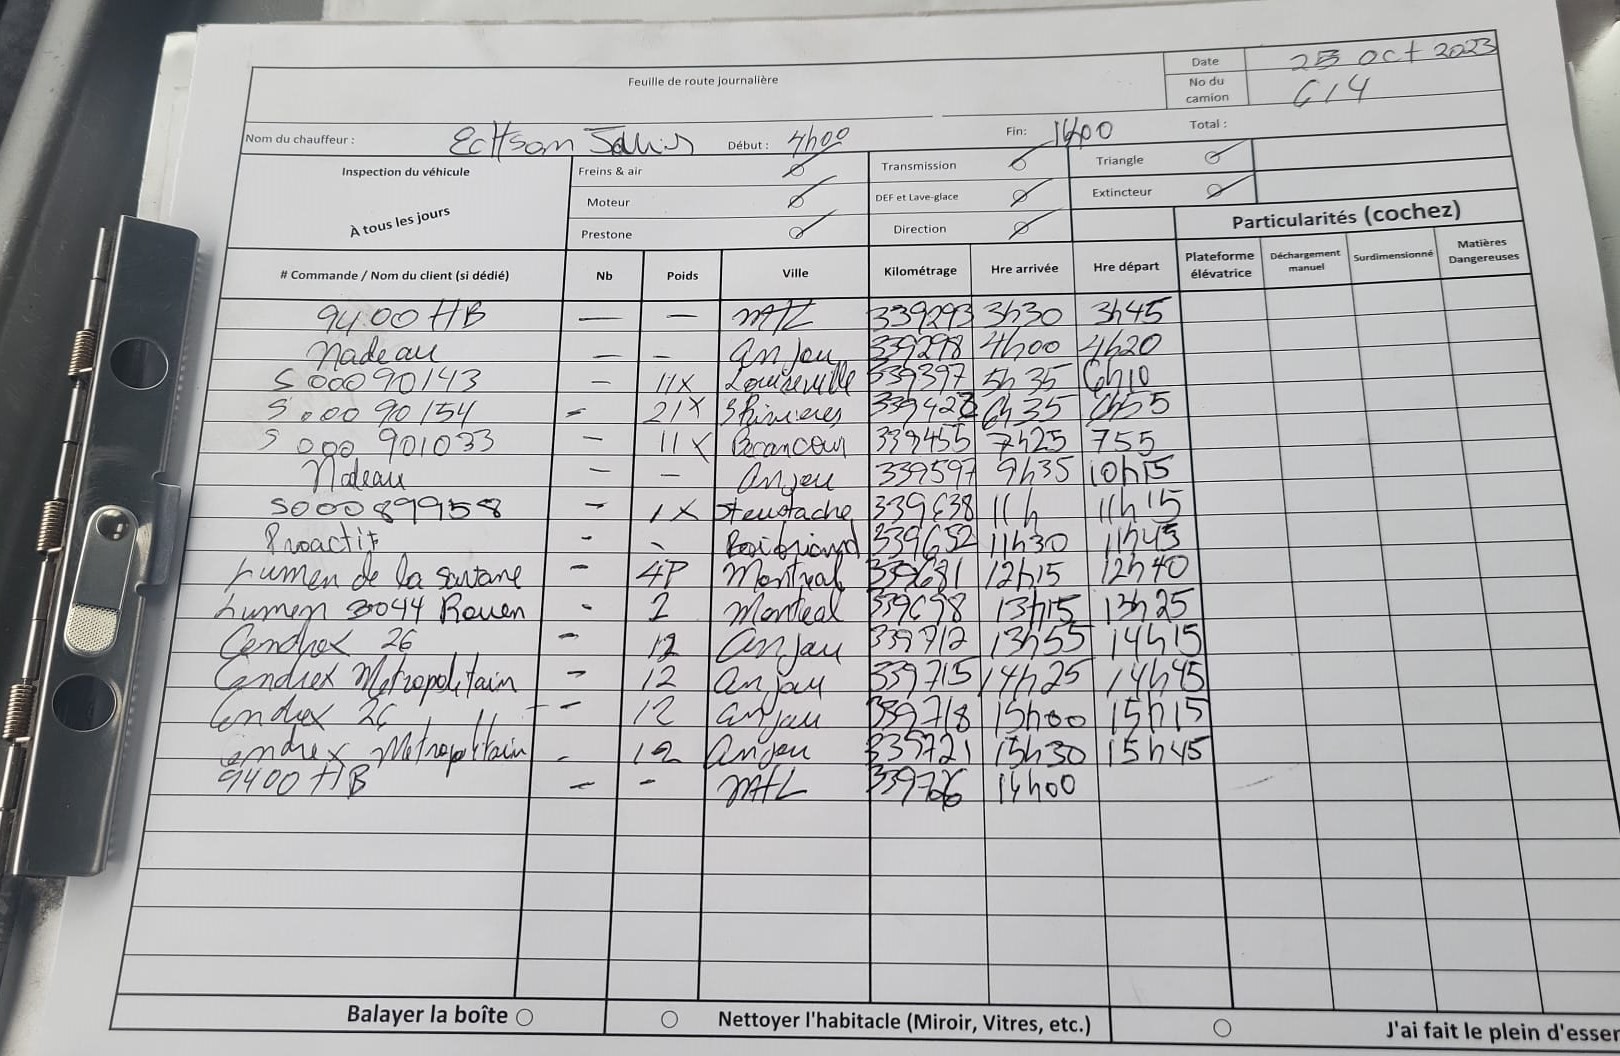 Feuille de route journalière
Date Oct 2023
No du camion 614
Nom du chauffeur : Début : 4h00 Fin: Total :
Inspection du véhicule
À tous les jours
Freins & air Transmission Triangle
Moteur DEF et Lave-glace Extincteur
Prestone Direction
Particularités (cochez)
# Commande / Nom du client (si dédié) Nb Poids Ville Kilométrage Hre arrivée Hre départ Plateforme élévatrice Déchargement manuel Surdimensionné Matières Dangereuses
9400 HB — — MTL 339293 3h30 3h45
Nadeau — - Anjou 339298 4h00 4h20
S00090143 — 11X Louiseville 339397 5h35 6h10
S00090154 - 21X 3Rivieres 6h35 6h55
S000901033 — 11X Becancour 339455 7h25 755
Nadeau — — Anjou 339597 9h35 10h15
S000899958 - 1X Steustache 339638 11h 11h15
Proactif - - Boisbriand 339652 11h30 11h45
Lumen de la savane - 4P Montreal 339681 12h15 12h40
Lumen 3044 Rouen - 2 Monteal 339698 13h15 13h25
Cendrex 26 - 12 Anjou 339712 13h55 14h15
Cendrex Metropolitain - 12 Anjou 339715 14h25 14h45
Cendrex 26 - 12 Anjou 339718 15h00 15h15
endrex Metropolitain - 12 Anjou 339721 15h30 15h45
9400 HB - - MTL 339726
Balayer la boîte Nettoyer l'habitacle (Miroir, Vitres, etc.) J'ai fait le plein d'essen